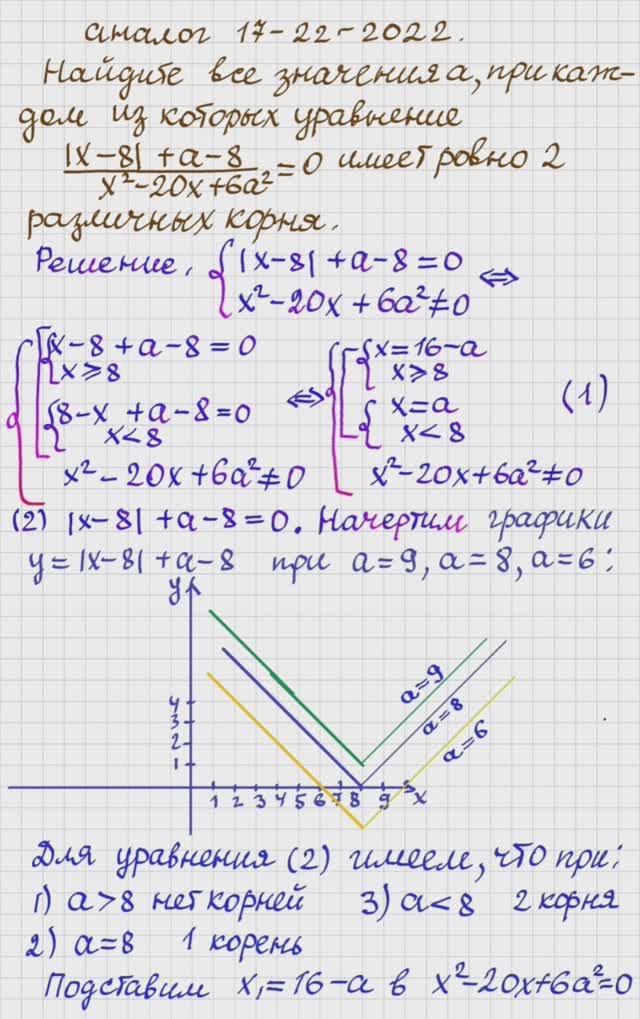 аналог 17-22-2022.
Найдите все значения а, при каж-
дом из которых уравнение
|x-8| + a-8 / x²-20x+6a² = 0 имеет ровно 2
различных корня.
Решение, { |x-8| + a-8 = 0
x²-20x+6a² ≠ 0 ⇔
{ [ { x-8+a-8 = 0
x ≥ 8
{ 8-x +a-8 = 0
x < 8
x²-20x+6a² ≠ 0
⇔ { [ { x = 16-a
x ≥ 8
{ x = a
x < 8
x²-20x+6a² ≠ 0
(1)
(2) |x-8| + a-8 = 0. Начертим графики
y = |x-8| + a-8 при a=9, a=8, a=6:
y
4
3
2
1
1 2 3 4 5 6 7 8 9 x
a=9
a=8
a=6
Для уравнения (2) имеем, что при:
1) a>8 нет корней 3) a<8 2 корня
2) a=8 1 корень
Подставим x₁=16-a в x²-20x+6a²=0